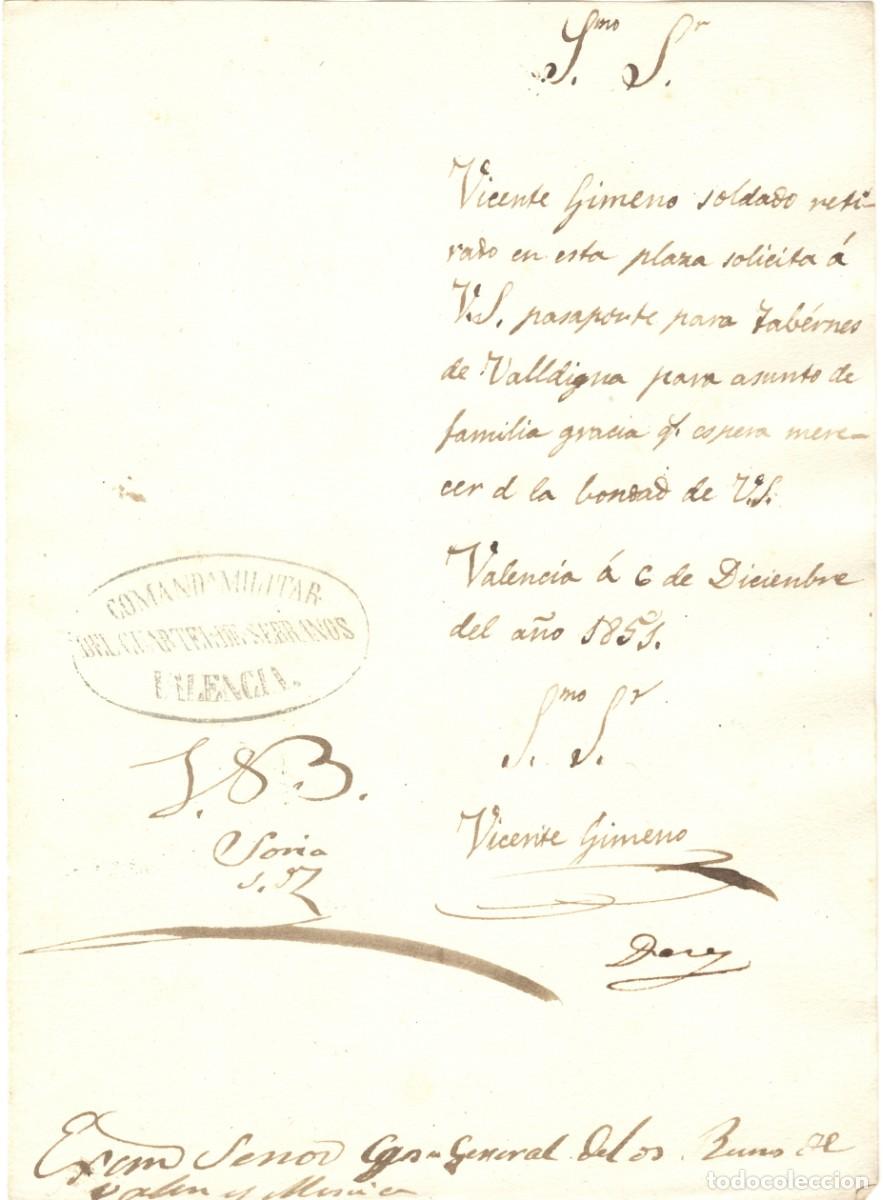 S.mo S.r
Vicente Gimeno soldado reti-
rado en esta plaza solicita á
V.S. pasaporte para Tabérnes
de Valldigna para asunto de
familia gracia q.e espera mere-
cer d la bondad de V.S.
Valencia á 6 de Diciembre
del año 1851.
S.mo S.r
Vicente Gimeno
COMAND.A MILITAR
DEL CUARTEL DE SERRANOS
VALENCIA.
Soria
Senor General de los
todocoleccion